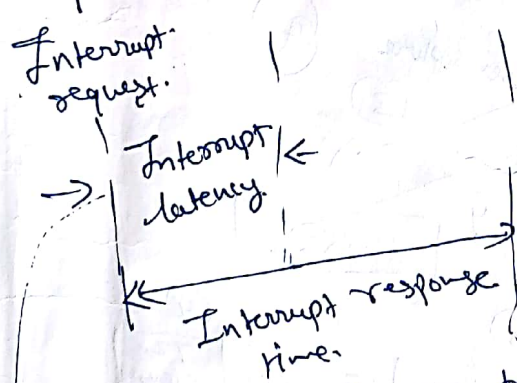 Interrupt
request.
Interrupt
latency.
Interrupt response
time.